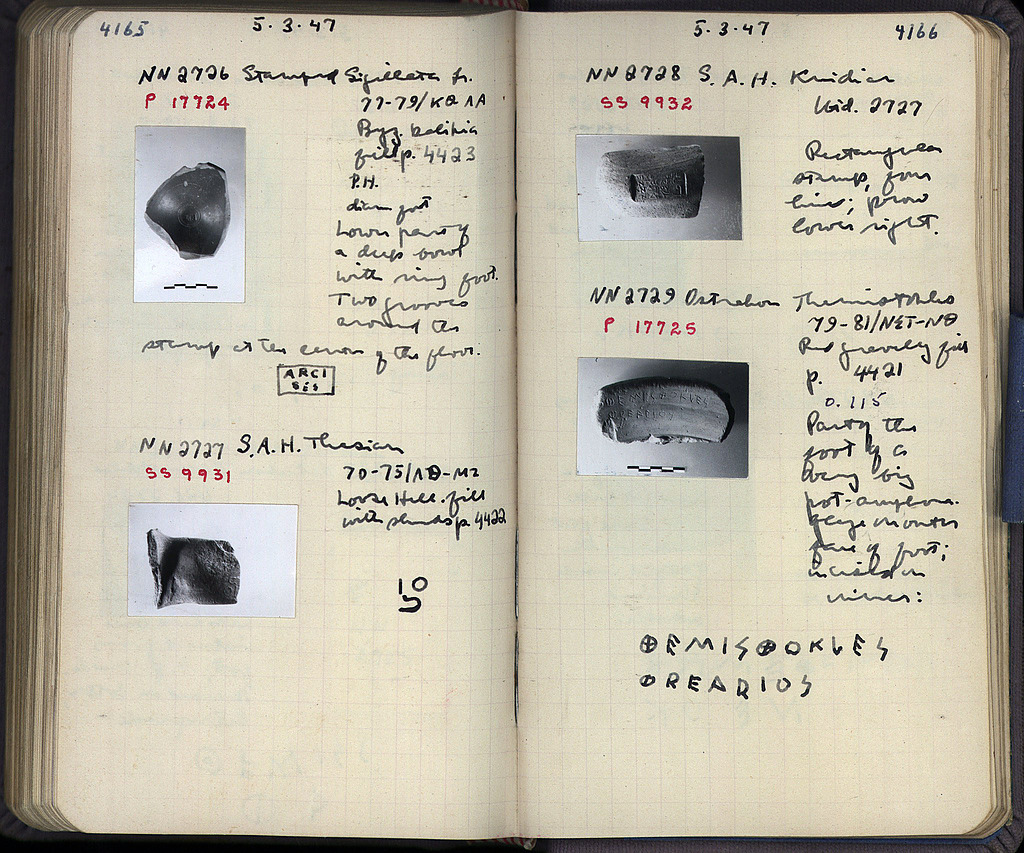 4165
5.3.47
NN 2726 Stamped Sigillata fr.
P 17724
77-79/ΚΘ ΛΑ
Byz.
fill p. 4423
P.H.
diam foot
Lower part of
a deep bowl
with ring foot.
Two grooves
around the
stamp at the center of the floor.
ARCI
SES
NN 2727 S.A.H. Thasian
SS 9931
70-75/ΛΘ-ΜΖ
Loose Hell. fill
with p. 4422
5.3.47
4166
NN 2728 S.A.H. Knidian
SS 9932
Uid. 2727
Rectangular
stamp, four
lines; prow
lower right.
NN 2729 Ostrakon Themistokles
P 17725
79-81/ΝΣΤ-ΝΘ
Red gravelly fill
p. 4421
0.115
Part of the
foot of a
very big
pot-amphora.
Glaze on outer
face of foot;
incised on
:
ΘEMISΘOKLES
ΦREARIOS